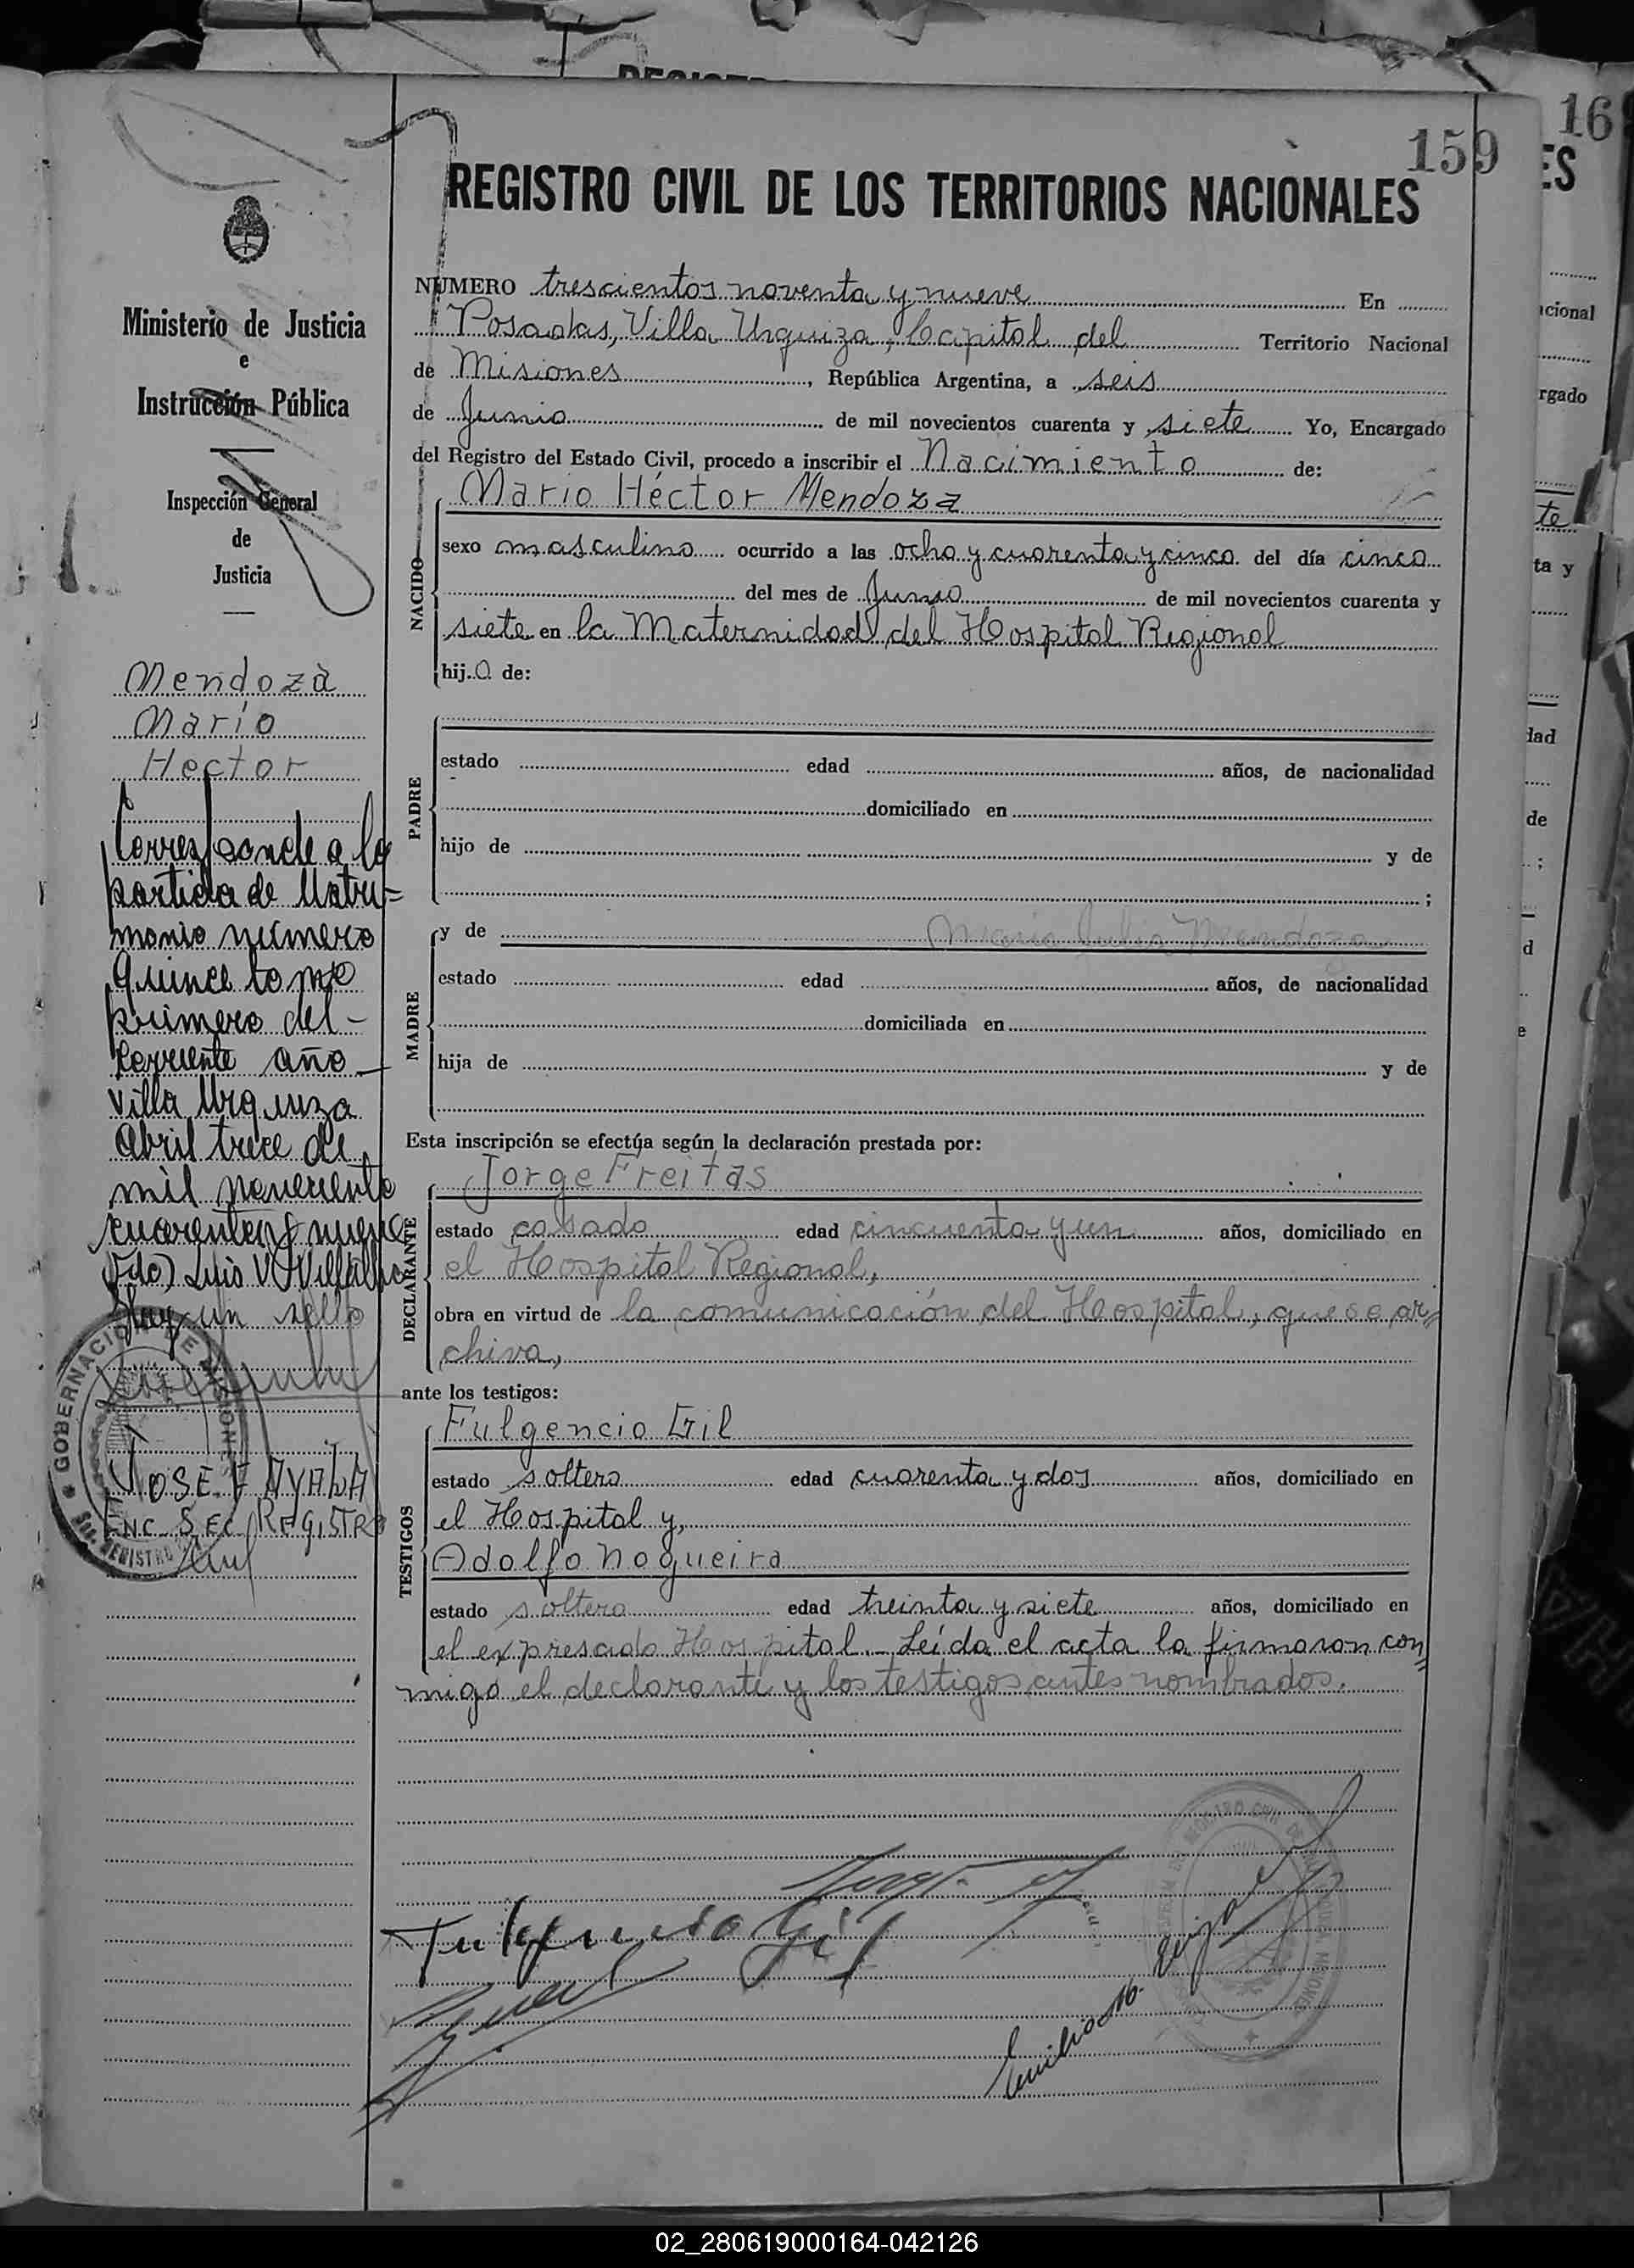 159
16
REGISTRO CIVIL DE LOS TERRITORIOS NACIONALES
ES
Ministerio de Justicia
e
Instrucción Pública
Inspección General
de
Justicia
Mendoza
Mario
Hector
Corresponde a la
partida de Matri=
monio número
quince tomo
primero del -
corriente año -
Villa Urquiza
Abril trece de
mil noveciento
cuarenta y nueve
Fdo) Luis V. Villalba
Hay un sello
GOBERNACION DE MISIONES
JOSE F AYALA
ENC. SEC. REGISTRO
NUMERO trescientos noventa y nueve En
Posadas, Villa Urquiza, Capital del Territorio Nacional
de Misiones, República Argentina, a seis
de Junio de mil novecientos cuarenta y siete Yo, Encargado
del Registro del Estado Civil, procedo a inscribir el Nacimiento de:
NACIDO
Mario Héctor Mendoza
sexo masculino ocurrido a las ocho y cuarenta y cinco del día cinco
del mes de Junio de mil novecientos cuarenta y
siete en la Maternidad del Hospital Regional
hijo de:
PADRE
estado edad años, de nacionalidad
domiciliado en
hijo de y de
;
MADRE
y de María Julia Mendoza
estado edad años, de nacionalidad
domiciliada en
hija de y de
Esta inscripción se efectúa según la declaración prestada por:
DECLARANTE
Jorge Freitas
estado casado edad cincuenta y un años, domiciliado en
el Hospital Regional,
obra en virtud de la comunicación del Hospital, que se ar=
chiva,
ante los testigos:
TESTIGOS
Fulgencio Gil
estado soltero edad cuarenta y dos años, domiciliado en
el Hospital y,
Adolfo Nogueira
estado soltero edad treinta y siete años, domiciliado en
el expresado Hospital. Leída el acta la firmaron con=
migo el declarante y los testigos antes nombrados.
Fulgencio Gil
Emilio M.
02_280619000164-042126